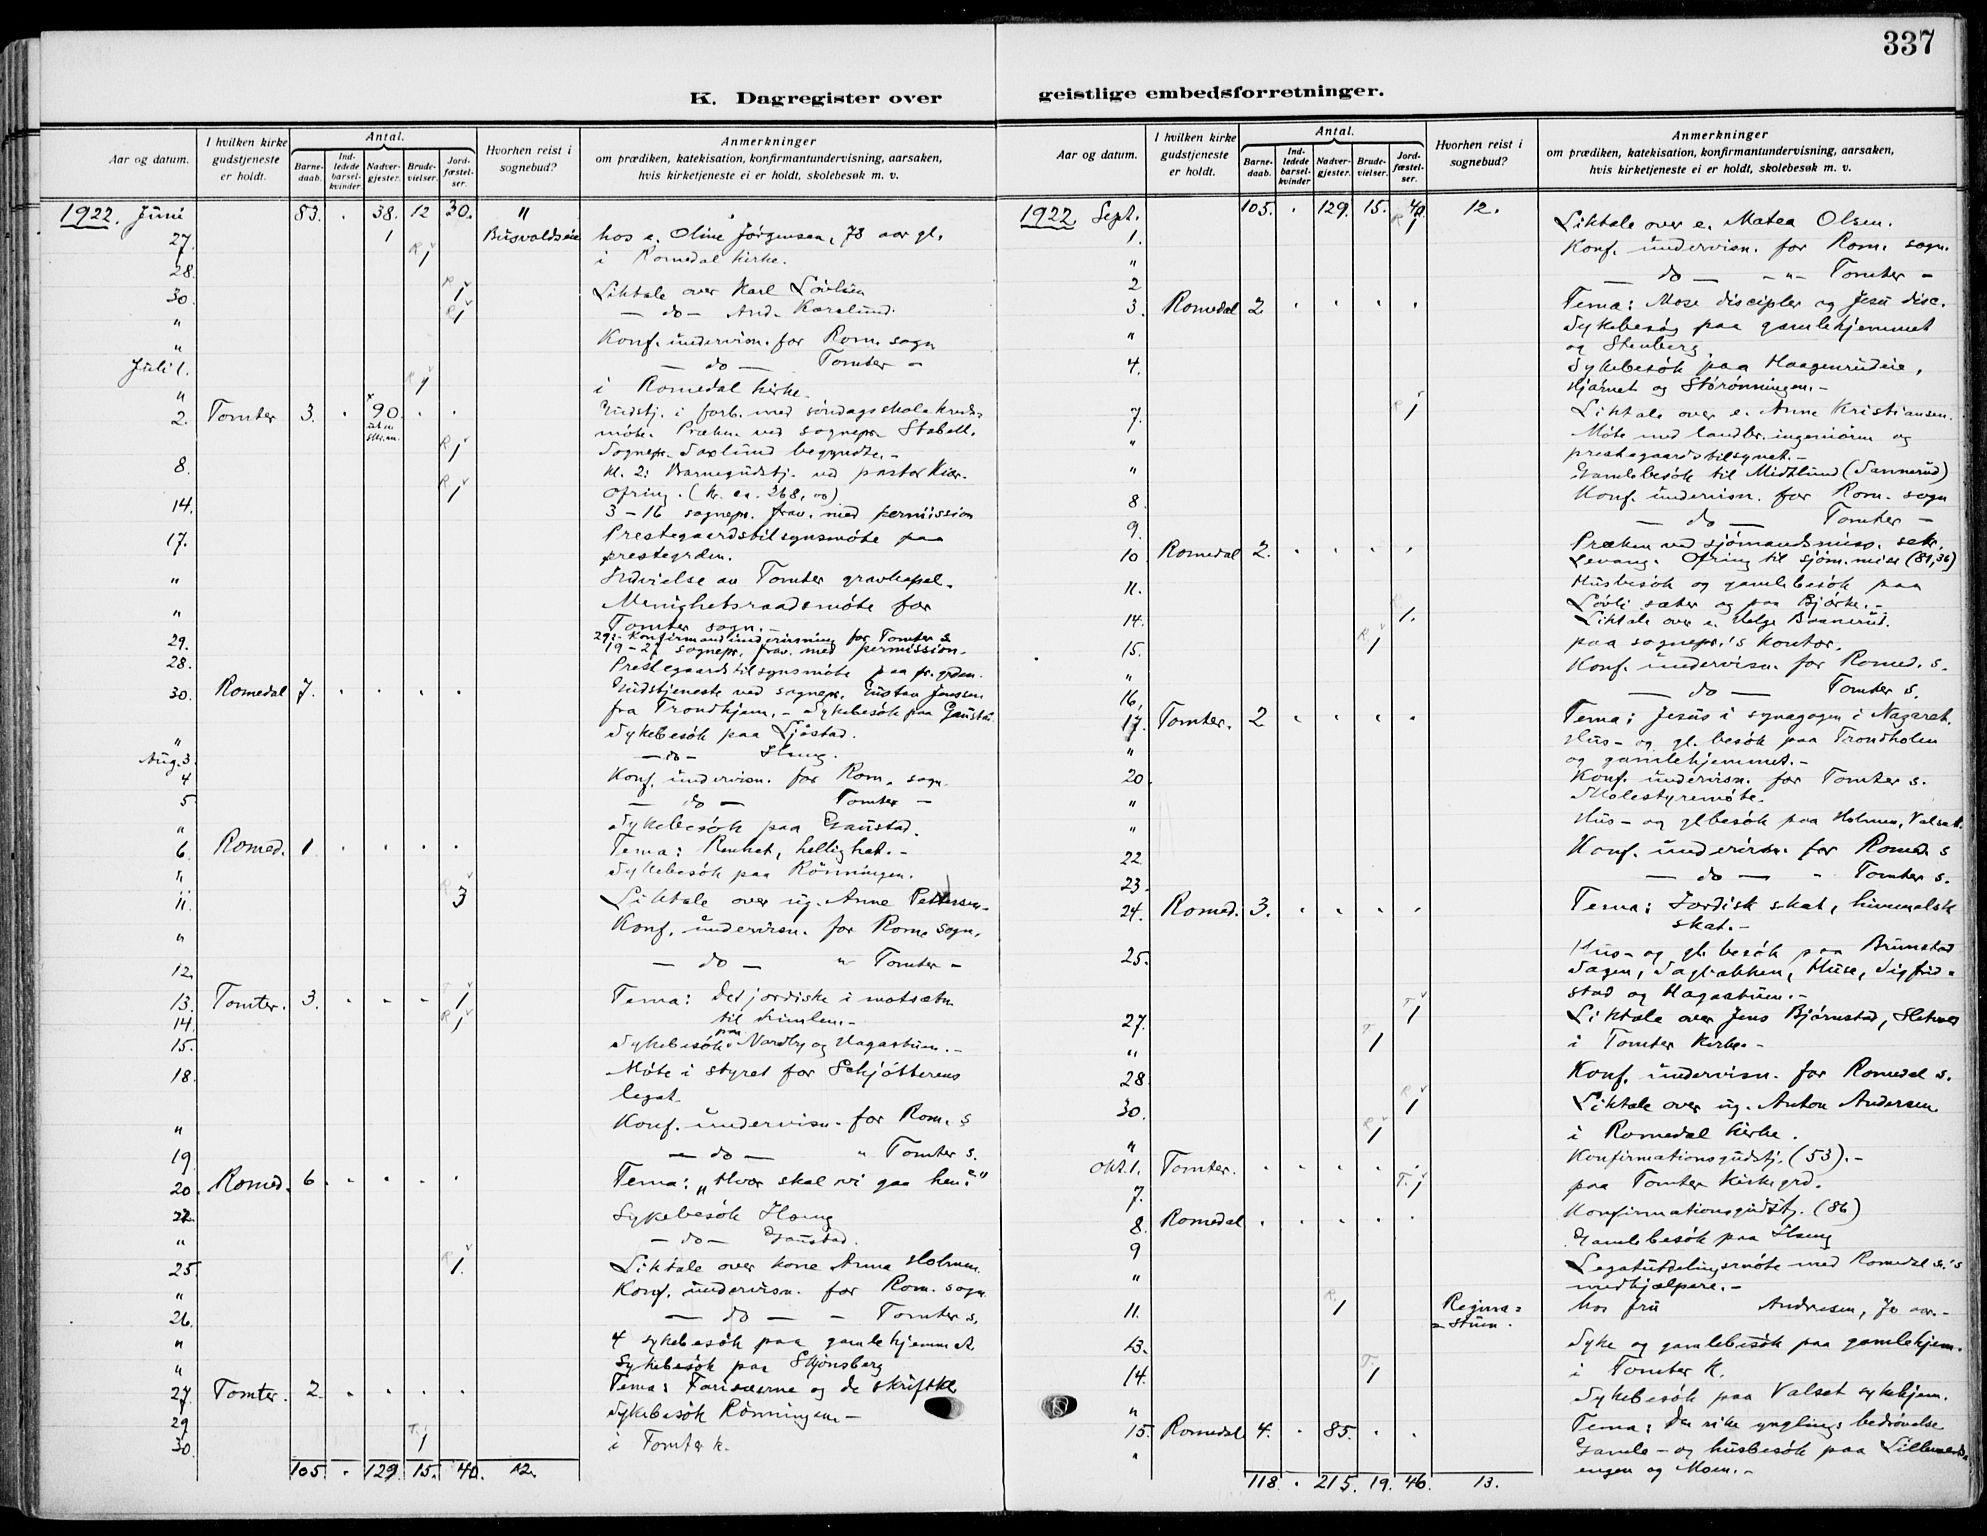 337
K. Dagregister over geistlige embedsforretninger.
Aar og datum.
I hvilken kirke gudstjeneste er holdt.
Antal.
Barne-daab.
Ind-ledede barsel-kvinder
Nadver-gjester.
Brude-vielser.
Jord-fæstel-ser.
Hvorhen reist i sognebud?
Anmerkninger
om prædiken, katekisation, konfirmantundervisning, aarsaken,
hvis kirketjeneste ei er holdt, skolebesøk m. v.
1922. Juni 83. . 38. 12 30. "
27. 1 Busvoldseie hos e. Oline Jørgensen, 73 aar gl.
28. R 1 i Romedal kirke.
30. R 1 Liktale over Karl Løvlien
" R 1 — do — And. Karslund.
" Konf. undervisn. for Rom. sogn
Juli 1. — do — Tomter —
" R 1 i Romedal kirke.
2. Tomter 3. . 90. . . Gudstj. i forb. med søndagsskolekreds-
møte. Præken ved sognepr. Stabell.
8. R 1 Sognepr. Saxlund begyndte.—
Kl. 2: Barnegudstj. ved pastor Kiær.
14. R 1 Ofring. (kr. ca. 268,00)
3 – 16 sognepr. frav. med permission
17. Prestegaardstilsynsmøte paa
prestegrden.
" Indvielse av Tomter gravkapel.
" Menighetsraadsmøte for
Tomter sogn.—
29. 29:- Konfirmandundervisning for Tomter s.
28. 19–27 sognepr. frav. med permission.
Prestegaardstilsynsmøte paa pr.grden.
30. Romedal 7. . . . . Gudstjeneste ved sognepr. Gustav Jenssen
fra Trondhjem.— Sykebesøk paa Gaustad
" Sykebesøk paa Ljøstad.
Aug. 3. — do —
4 Konf. undervisn. for Rom. sogn.
5 — do — Tomter —
" Sykebesøk paa Gaustad.
6. Romed. 1 . . . . Tema: Renhet, hellighet.—
" Sykebesøk paa Rønningen.
11. R 3 Liktale over ug. Anne Pettersen.
" Konf. undervisn. for Rom. sogn.
12. — do — " Tomter —
13. Tomter. 3. . . . T 1 Tema: Det jordiske i motsætn.
14. R 1 til himlen.—
15. Sykebesøk paa Nordby og Hagastuen.—
18. Møte i styret for Schjötterens
legat.
" Konf. undervisn. for Rom. s
19. — do — " Tomter s.
20. Romed. 6. . . . . Tema: „Hvor skal vi gaa hen?"
22. Sykebesøk
" — do — Gaustad.
25. R 1. Liktale over kone Anna Holmen.
" Konf. undervisn. for Rom. sogn
26. — do — — Tomter s.
" 4 sykebesøk paa gamlehjemmet.
" Sykebesøk paa Skjønsberg
27. Tomter. 2. . . . . Tema: Farisæerne og de skriftkl.
29 Sykebesøk Rønningen —
30. T. 1 i Tomter k.
105 . 129. 15. 40. 12.
Aar og datum.
I hvilken kirke gudstjeneste er holdt.
Antal.
Barne-daab.
Ind-ledede barsel-kvinder
Nadver-gjester.
Brude-vielser.
Jord-fæstel-ser.
Hvorhen reist i sognebud?
Anmerkninger
om prædiken, katekisation, konfirmantundervisning, aarsaken,
hvis kirketjeneste ei er holdt, skolebesøk m. v.
1922. Sept. 105. . 129. 15. 40. 12.
1. R 1 Liktale over e. Matea Olsen.
" Konf. undervisn. for Rom. sogn.
2 — do — — " — Tomter —
3. Romedal 2. . . . . Tema: Mose discipler og Jesu disc.
" Sykebesøg paa gamlehjemmet
og Stenberg.
4. Sykebesøk paa Haagenrudeie,
Hjørnet og Størønningen.—
7. R 1 Liktale over e. Anne Kristiansen.
" Møte med landbr. ingeniøren og
prestegaardstilsynet.—
" Gamlebesøk til Midtlund (Sannerud)
8. Konf. undervisn. for Rom. sogn
9. — do — Tomter —
10 Romedal 2. . . . . Præken ved sjømandsmiss. sekr.
Levang. Ofring til sjøm.mis. (81,36)
11. Husbesøk og gamlebesøk paa
Løvli sæter og paa Bjørke.—
14. R 1. Liktale over e. Helge Brænerud.
15. R. 1 paa sognepr.'s kontor.
" Konf. undervisn. for Romed. s.
16. — do — Tomter s.
17. Tomter. 2 . . . . Tema: Jesus i synagogen i Nazaret.
" Hus- og gl. besøk paa Trondholen
og gamlehjemmet.—
20. Konf. undervisn. for Tomter s.
" Skolestyremøte.
" Hus- og gl besøk paa Holmen, Valset.
22. Konf. undervisn. for Romed. s
23. — do — " Tomter s.
24. Romed. 3. . . . . Tema: Jordisk skat, himmelsk
skat.—
25. Hus- og gl. besøk paa Brunstad
Sagen, Sagbakken, Huse, Sigfrid-
stad og Hagastuen.—
27. T. 1 Liktale over Jens Bjørnstad,
" T. 1 i Tomter kirke.—
28. Konf. undervisn. for Romedal s.
30. R 1 Liktale over ug. Anton Andersen
" R 1 i Romedal kirke.
Okt. 1. Tomter. . . . . . Konfirmationsgudstj. (53).—
7. T. 1 paa Tomter kirkegrd.
8. Romedal . . . . . Konfirmationsgudstj. (86)
9 Gamlebesøk paa
" Legatutdelingsmøte med Romedal s.'s
medhjælpere.—
11. R. 1 Regina=
=stuen. hos fru Andresen, 70 aar.—
13. Syke og gamlebesøk paa gamlehjem.
14. T. 1 i Tomter k.
" Sykebesøk paa Valset sykehjem.
15. Romedal 4. . 85. . . Tema: Den rike ynglings bedrøvelse
" Gamle- og husbesøk paa
engen og Moen.—
118. . 215. 19. 46. 13.